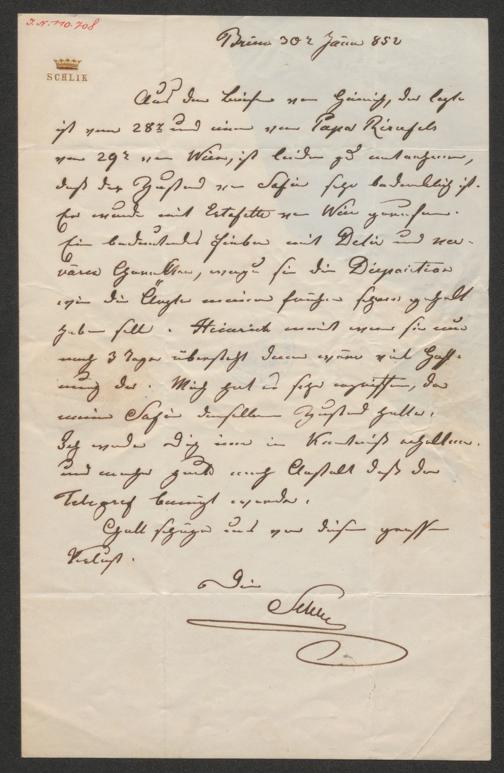 J. N. 110.708
SCHLIK
Brünn 30t Jäner 852
Aus den Briefen von Heinrich, der letzte
ist vom 28t und einem von Papa
vom 29t von Wien, ist leider zu entnehmen,
daß der Zustand von Sofie sehr bedenklich ist.
Er wurde mit Estafette von Wien gerufen.
Ein bedeutendes Fieber mit Delir und ner-
vösen Charakter, wozu sie die Disposition
wie die Ärzte meinen früher schon gehabt
haben soll. Heinrich meint wenn sie nur
noch 3 Tage übersteht dann wäre viel Hoff-
nung da. Mich hat es sehr ergriffen, da
meine Sofie denselben Zustand hatte.
Ich werde Dich immer in Kenntniß erhalten.
und mache heute noch Anstalt daß der
Telegraf benützt werde.
Gott schütze uns vor diesem großen
Verlust.
Dein
Schlik